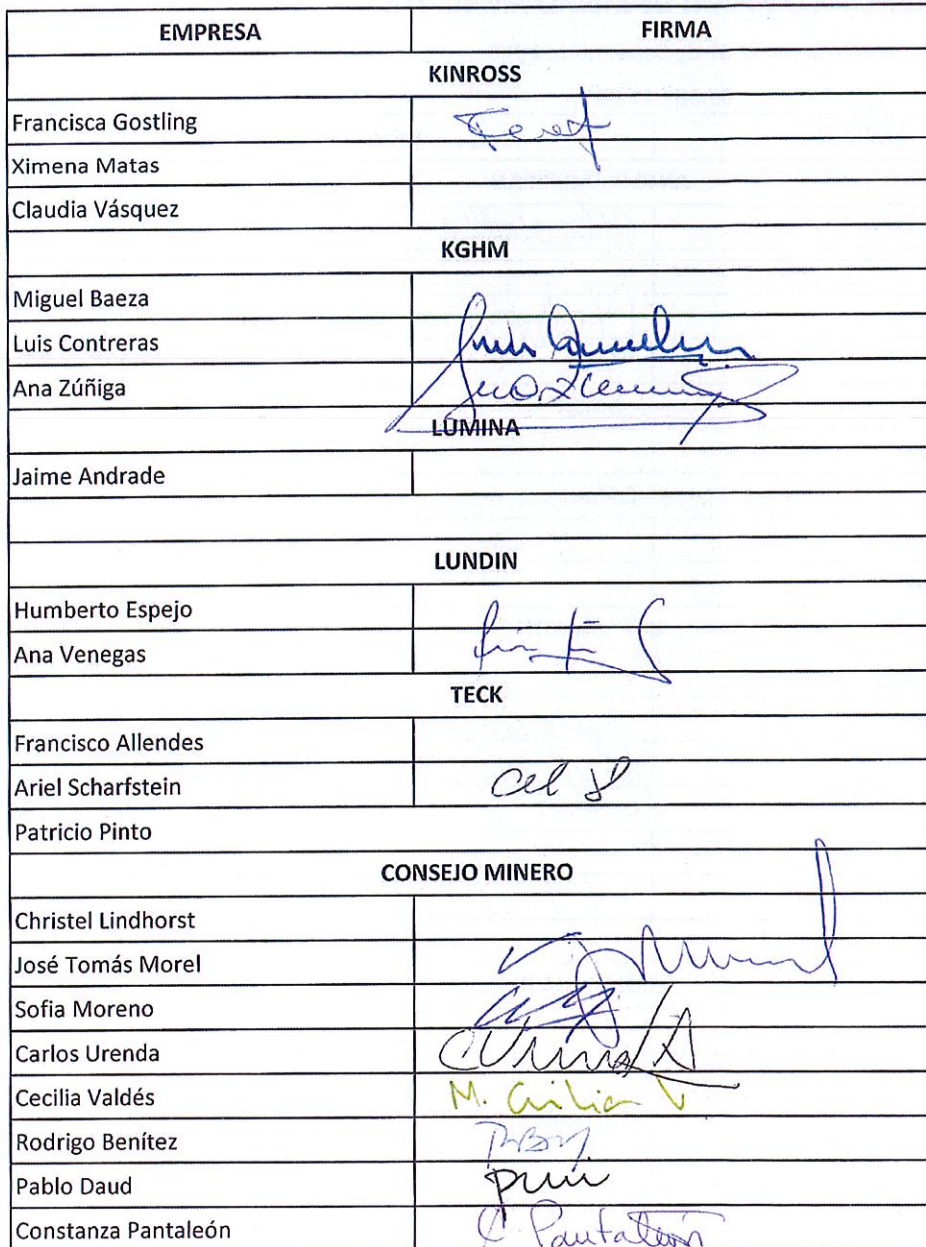 EMPRESA FIRMA
KINROSS
Francisca Gostling
Ximena Matas
Claudia Vásquez
KGHM
Miguel Baeza
Luis Contreras
Ana Zúñiga
LUMINA
Jaime Andrade
LUNDIN
Humberto Espejo
Ana Venegas
TECK
Francisco Allendes
Ariel Scharfstein
Patricio Pinto
CONSEJO MINERO
Christel Lindhorst
José Tomás Morel
Sofia Moreno
Carlos Urenda
Cecilia Valdés M. Cecilia V
Rodrigo Benítez
Pablo Daud
Constanza Pantaleón C. Pantaleón